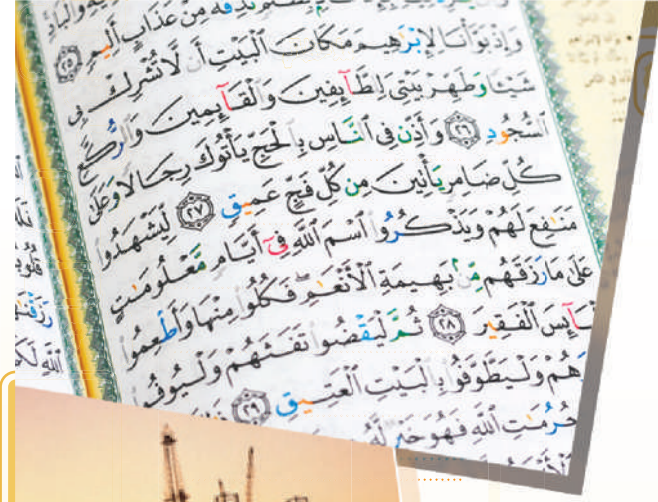 نُّذِقْهُ مِنْ عَذَابٍ أَلِيمٍ ٢٥
وَإِذْ بَوَّأْنَا لِإِبْرَٰهِيمَ مَكَانَ ٱلْبَيْتِ أَن لَّا تُشْرِكْ بِى
شَيْـًٔا وَطَهِّرْ بَيْتِىَ لِلطَّآئِفِينَ وَٱلْقَآئِمِينَ وَٱلرُّكَّعِ
ٱلسُّجُودِ ٢٦ وَأَذِّن فِى ٱلنَّاسِ بِٱلْحَجِّ يَأْتُوكَ رِجَالًا وَعَلَىٰ
كُلِّ ضَامِرٍ يَأْتِينَ مِن كُلِّ فَجٍّ عَمِيقٍ ٢٧ لِّيَشْهَدُوا۟
مَنَٰفِعَ لَهُمْ وَيَذْكُرُوا۟ ٱسْمَ ٱللَّهِ فِىٓ أَيَّامٍ مَّعْلُومَٰتٍ
عَلَىٰ مَا رَزَقَهُم مِّنۢ بَهِيمَةِ ٱلْأَنْعَٰمِ ۖ فَكُلُوا۟ مِنْهَا وَأَطْعِمُوا۟
ٱلْبَآئِسَ ٱلْفَقِيرَ ٢٨ ثُمَّ لْيَقْضُوا۟ تَفَثَهُمْ وَلْيُوفُوا۟
هُمْ وَلْيَطَّوَّفُوا۟ بِٱلْبَيْتِ ٱلْعَتِيقِ ٢٩
حُرُمَٰتِ ٱللَّهِ فَهُوَ خَيْرٌ لَّهُۥ